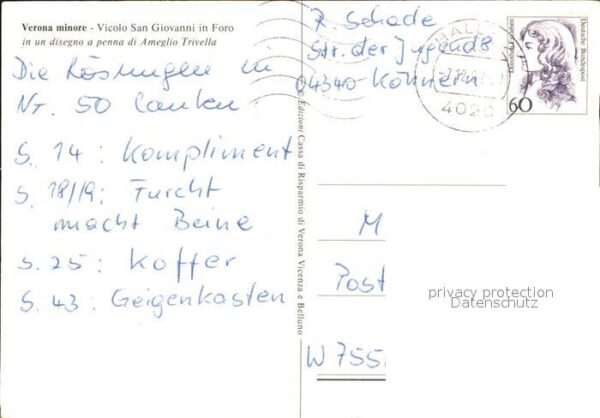 Verona minore - Vicolo San Giovanni in Foro
in un disegno a penna di Ameglio Trivella
Die Lösungen in
Nr. 50 lauten:
S. 14 : Kompliment
S. 18/19: Furcht
macht Beine
S. 25 : Koffer
S. 43 : Geigenkasten
Edizioni Cassa di Risparmio di Verona Vicenza e Belluno
R. Schade
Str. der Jugend 8
04340 Könnern
HALLE
4020
60
Deutsche Bundespost
M
Post
W 755
privacy protection
Datenschutz